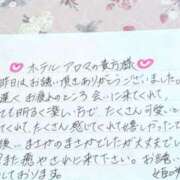 ホテルアロマの貴方様
昨日はお誘い頂きありがとうございました。
遅くお疲れのところ会いに来てくれて
ても明るく楽しい方で たくさん可愛い
たくさん感じてくれて嬉しかった
後、まさかのまさかでした
また癒やされに来て下さい。お誘い
しております。